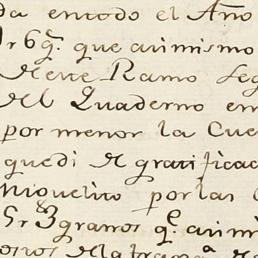 da entodo el Año
r 6q.s que asimismo
de este Ramo seg
del Quaderno en
por menor la Cue
quedi de gratificac
Miguelito por las
5r 3granos q.e asimi